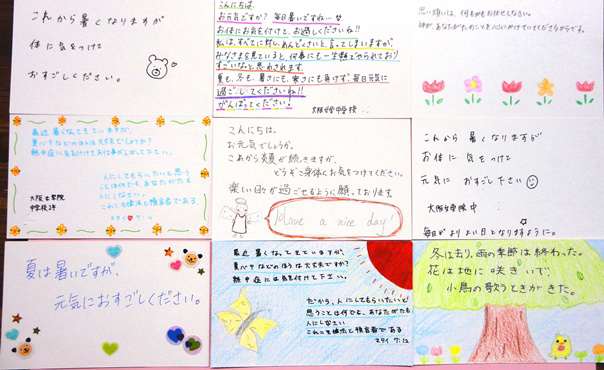 これから暑くなりますが
体に気をつけて
おすごしください。
こんにちは。
お元気ですか? 毎日暑いですね…
お体にお気を付けて、お過しくださいね!!
私は、すべてに対し、めんどくさいと言ってしまいますが、
みなさまを見ていると、何事にも一生懸命とやられており
すごいなと思わされます。
夏も、冬も、暑さにも、寒さにも負けずに、毎日元気に
過ごしてくださいね!!
がんばってください!
大阪女学院中学校
思い煩いは、何もかもお任せしなさい。
神が、あなたがたのことを心にかけていてくださるからです。
最近暑くなってきていますが、
夏バテなどのほうは大丈夫でしょうか?
熱中症に気を付けてお仕事がんばって下さい。
人にしてもらいたいと思う
ことは何でも、あなたがたも
人にしなさい。
これこそ律法と預言者である
マタイ 7:12
大阪女学院
中学校2年
こんにちは。
お元気でしょうか。
これから炎暑が続きますが、
どうぞお身体にお気をつけてください。
楽しい日々が過ごせるように願っております。
Have a nice day!
これから暑くなりますが
お体に気をつけて
元気におすごし下さい
大阪女学院中
毎日がよりよい日となりますように。
夏は暑いですが、
元気におすごしください。
最近暑くなってきていますが、
夏バテなどのほうは大丈夫ですか?
熱中症に気を付けて下さい。
だから、人にしてもらいたいと
思うことは何でも、あなたがたも
人にしなさい
これこそ律法と預言者である
マタイ 7:12
冬は去り、雨の季節は終わった。
花は地に咲きいで、
小鳥の歌うときがきた。